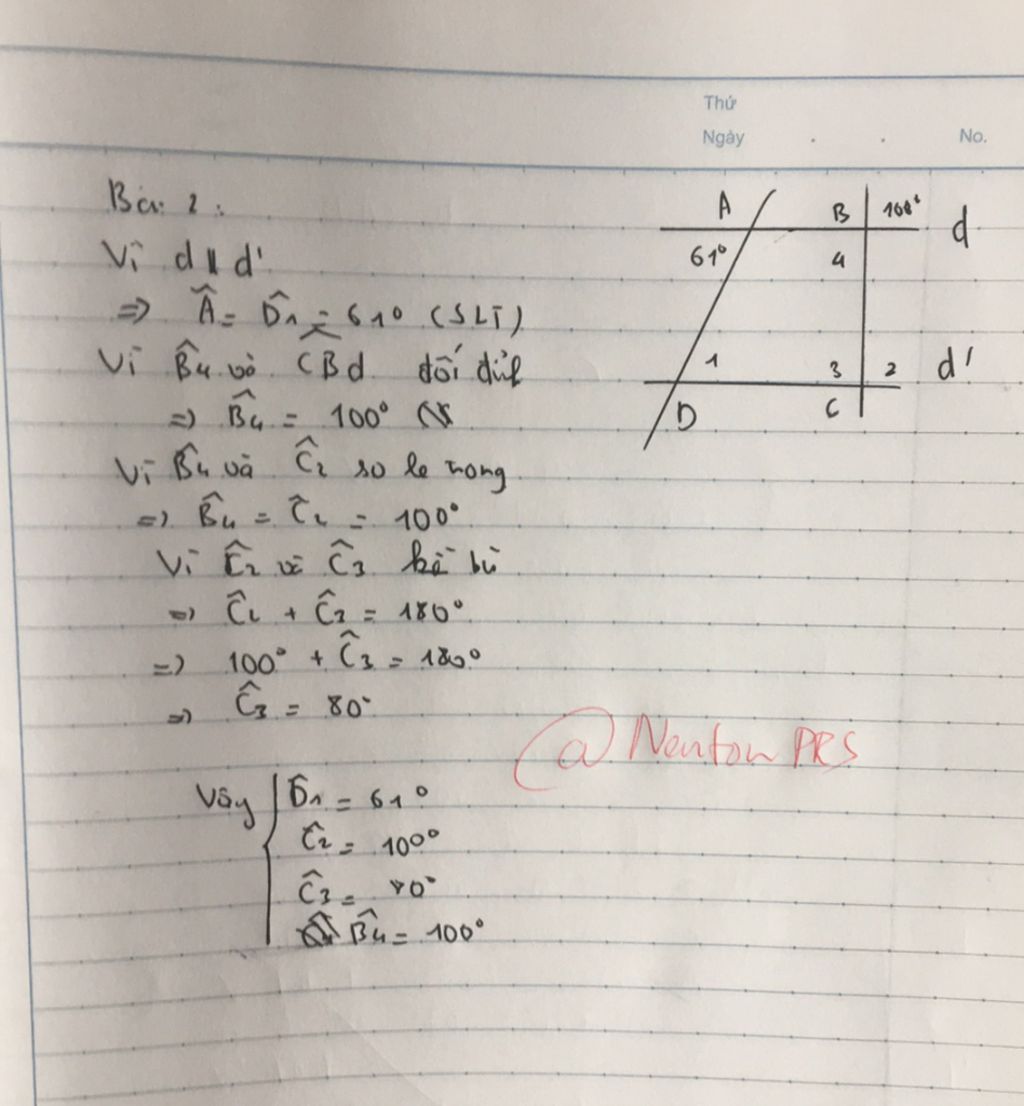 Thứ
Ngày . . No.
Bài 2:
Vì d // d'
=> Â = D̂1 = 61° (SLT)
Vì B̂4 và CBd đối đỉnh
=> B̂4 = 100°
Vì B̂4 và Ĉ2 so le trong
=> B̂4 = Ĉ2 = 100°
Vì Ĉ2 và Ĉ3 kề bù
=> Ĉ2 + Ĉ3 = 180°
=> 100° + Ĉ3 = 180°
=> Ĉ3 = 80°
Vậy D̂1 = 61°
Ĉ2 = 100°
Ĉ3 = 80°
B̂4 = 100°
A B 100° d
61° 4
1 3 2 d'
D C
@NewtonPRS